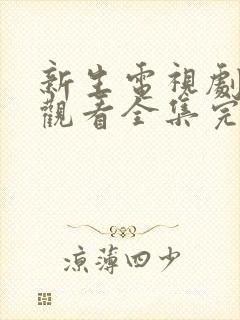 新生電視劇
觀看全集完
涼薄四少